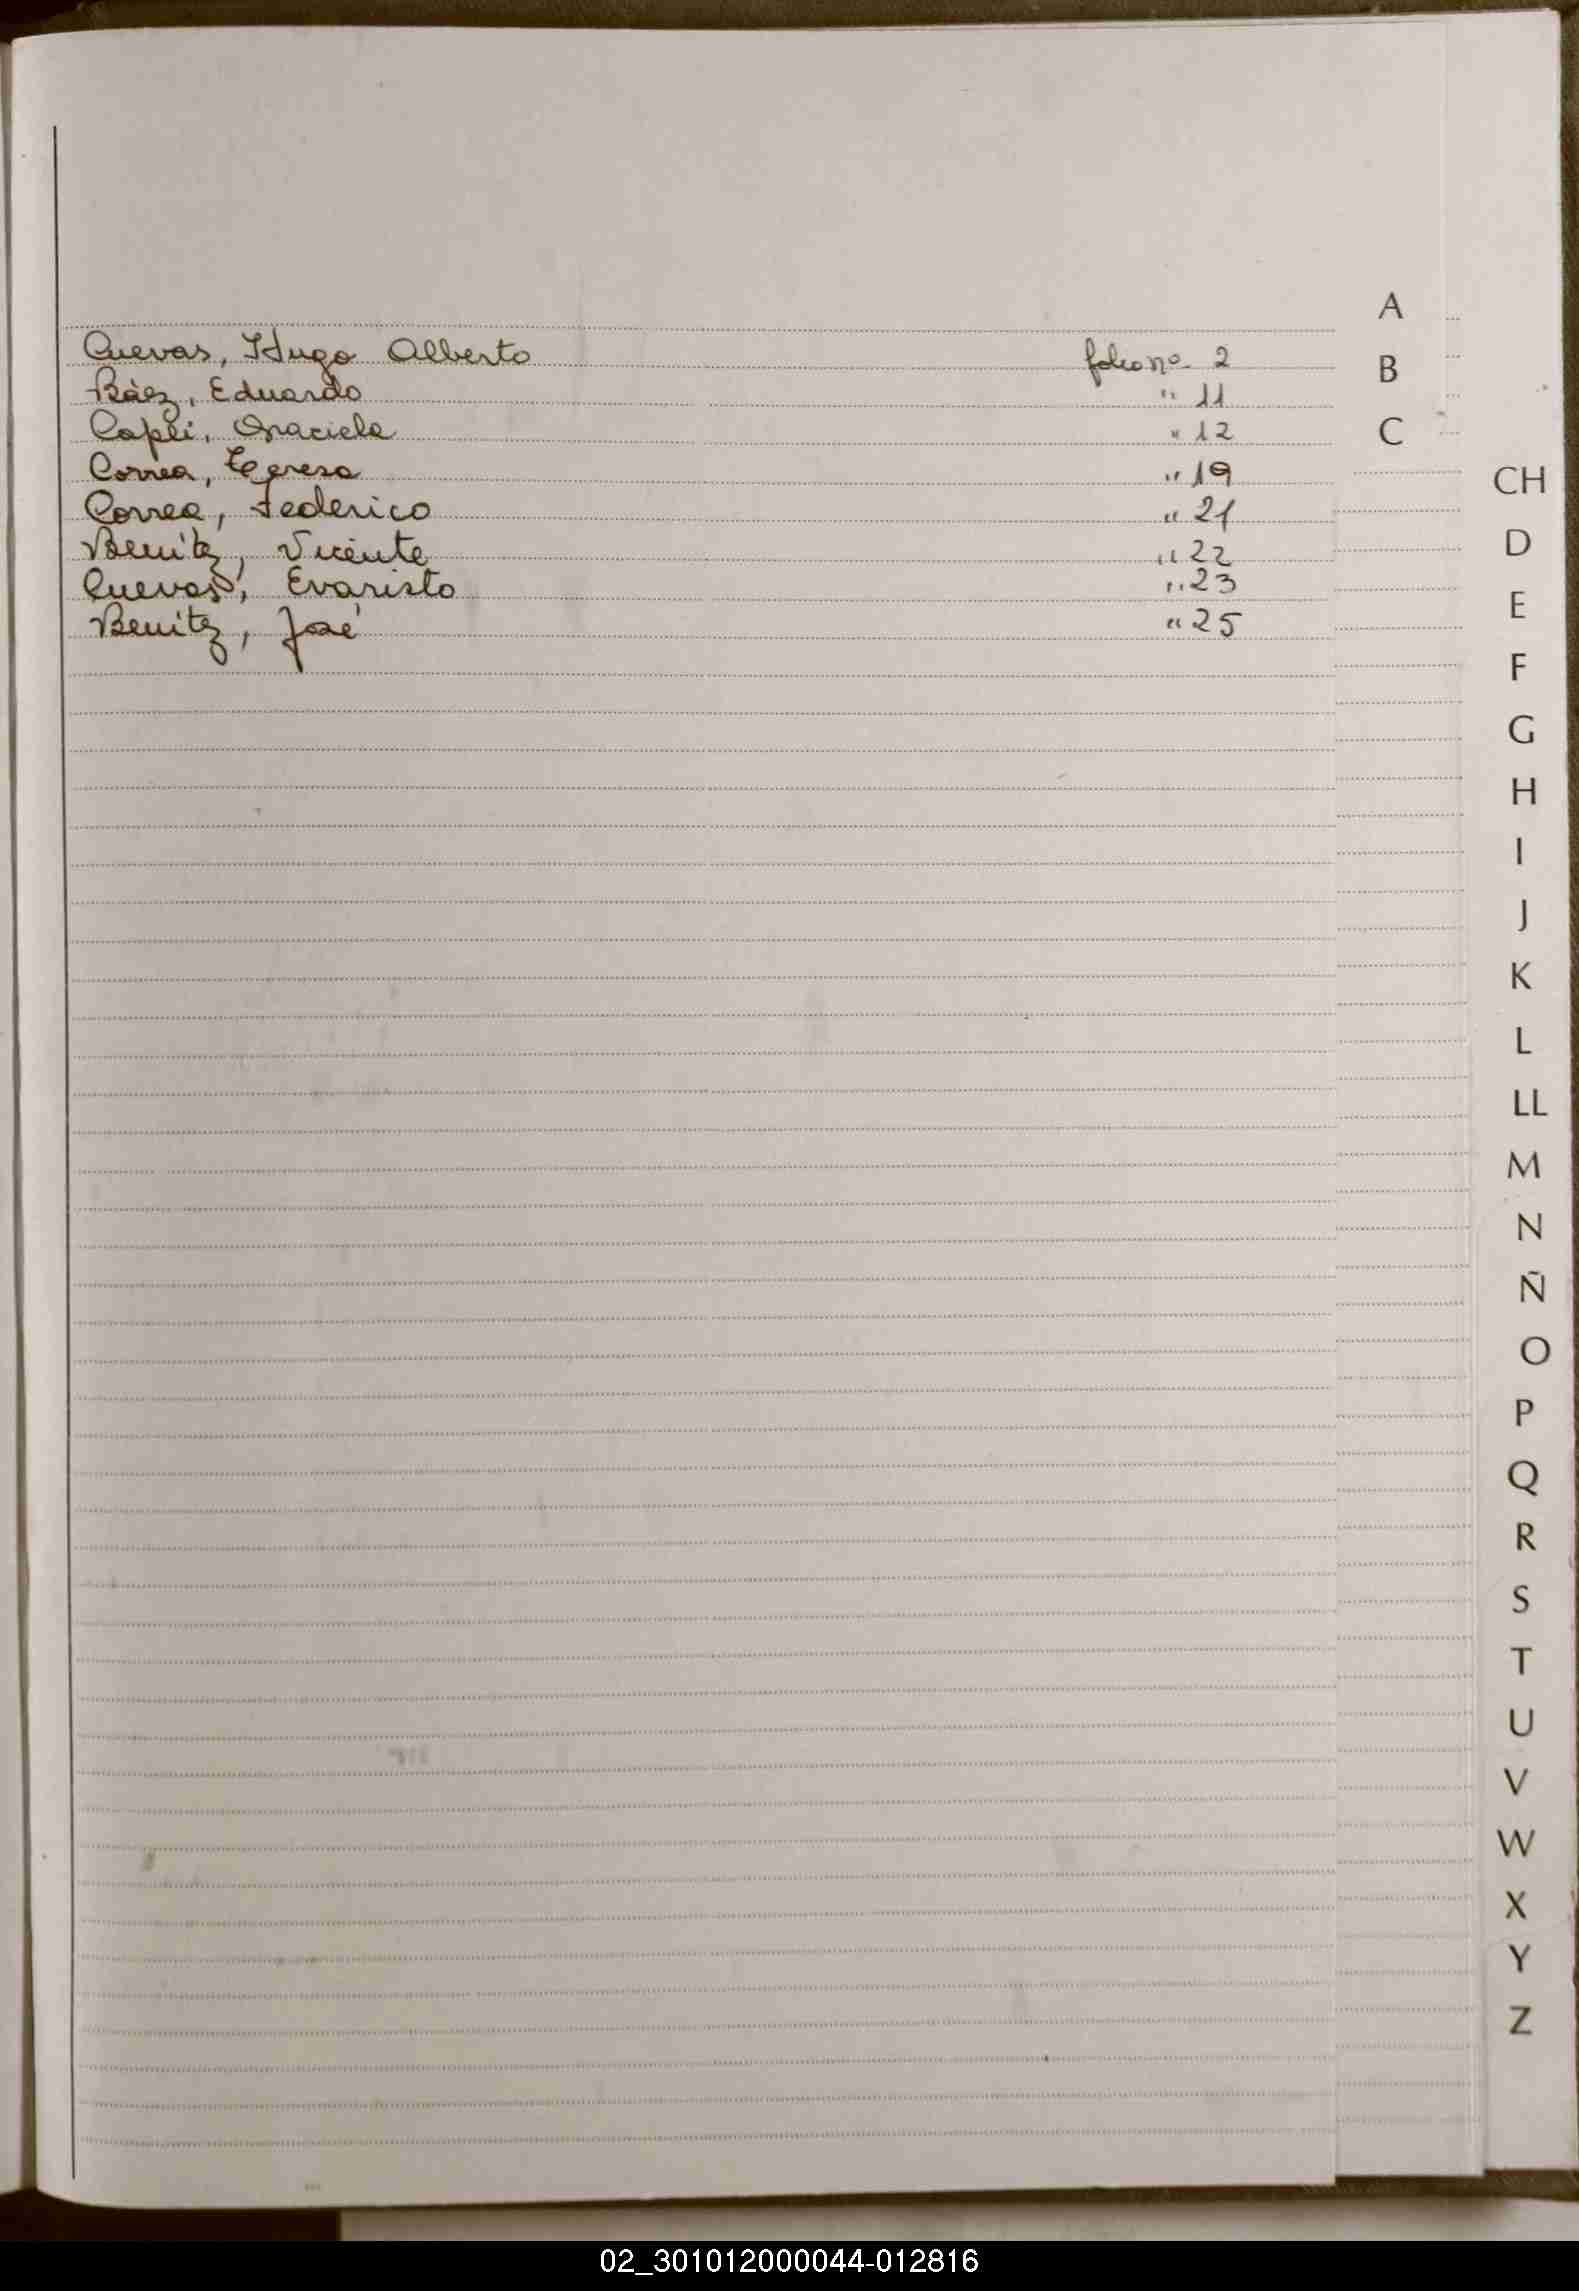 Cuevas, Hugo Alberto folio nº 2
Báez, Eduardo " 11
Capli, Graciela " 12
Correa, Teresa " 19
Correa, Federico " 21
Benítez, Vicente " 22
Cuevas, Evaristo " 23
Benítez, José " 25
A
B
C
CH
D
E
F
G
H
I
J
K
L
LL
M
N
Ñ
O
P
Q
R
S
T
U
V
W
X
Y
Z
02_301012000044-012816